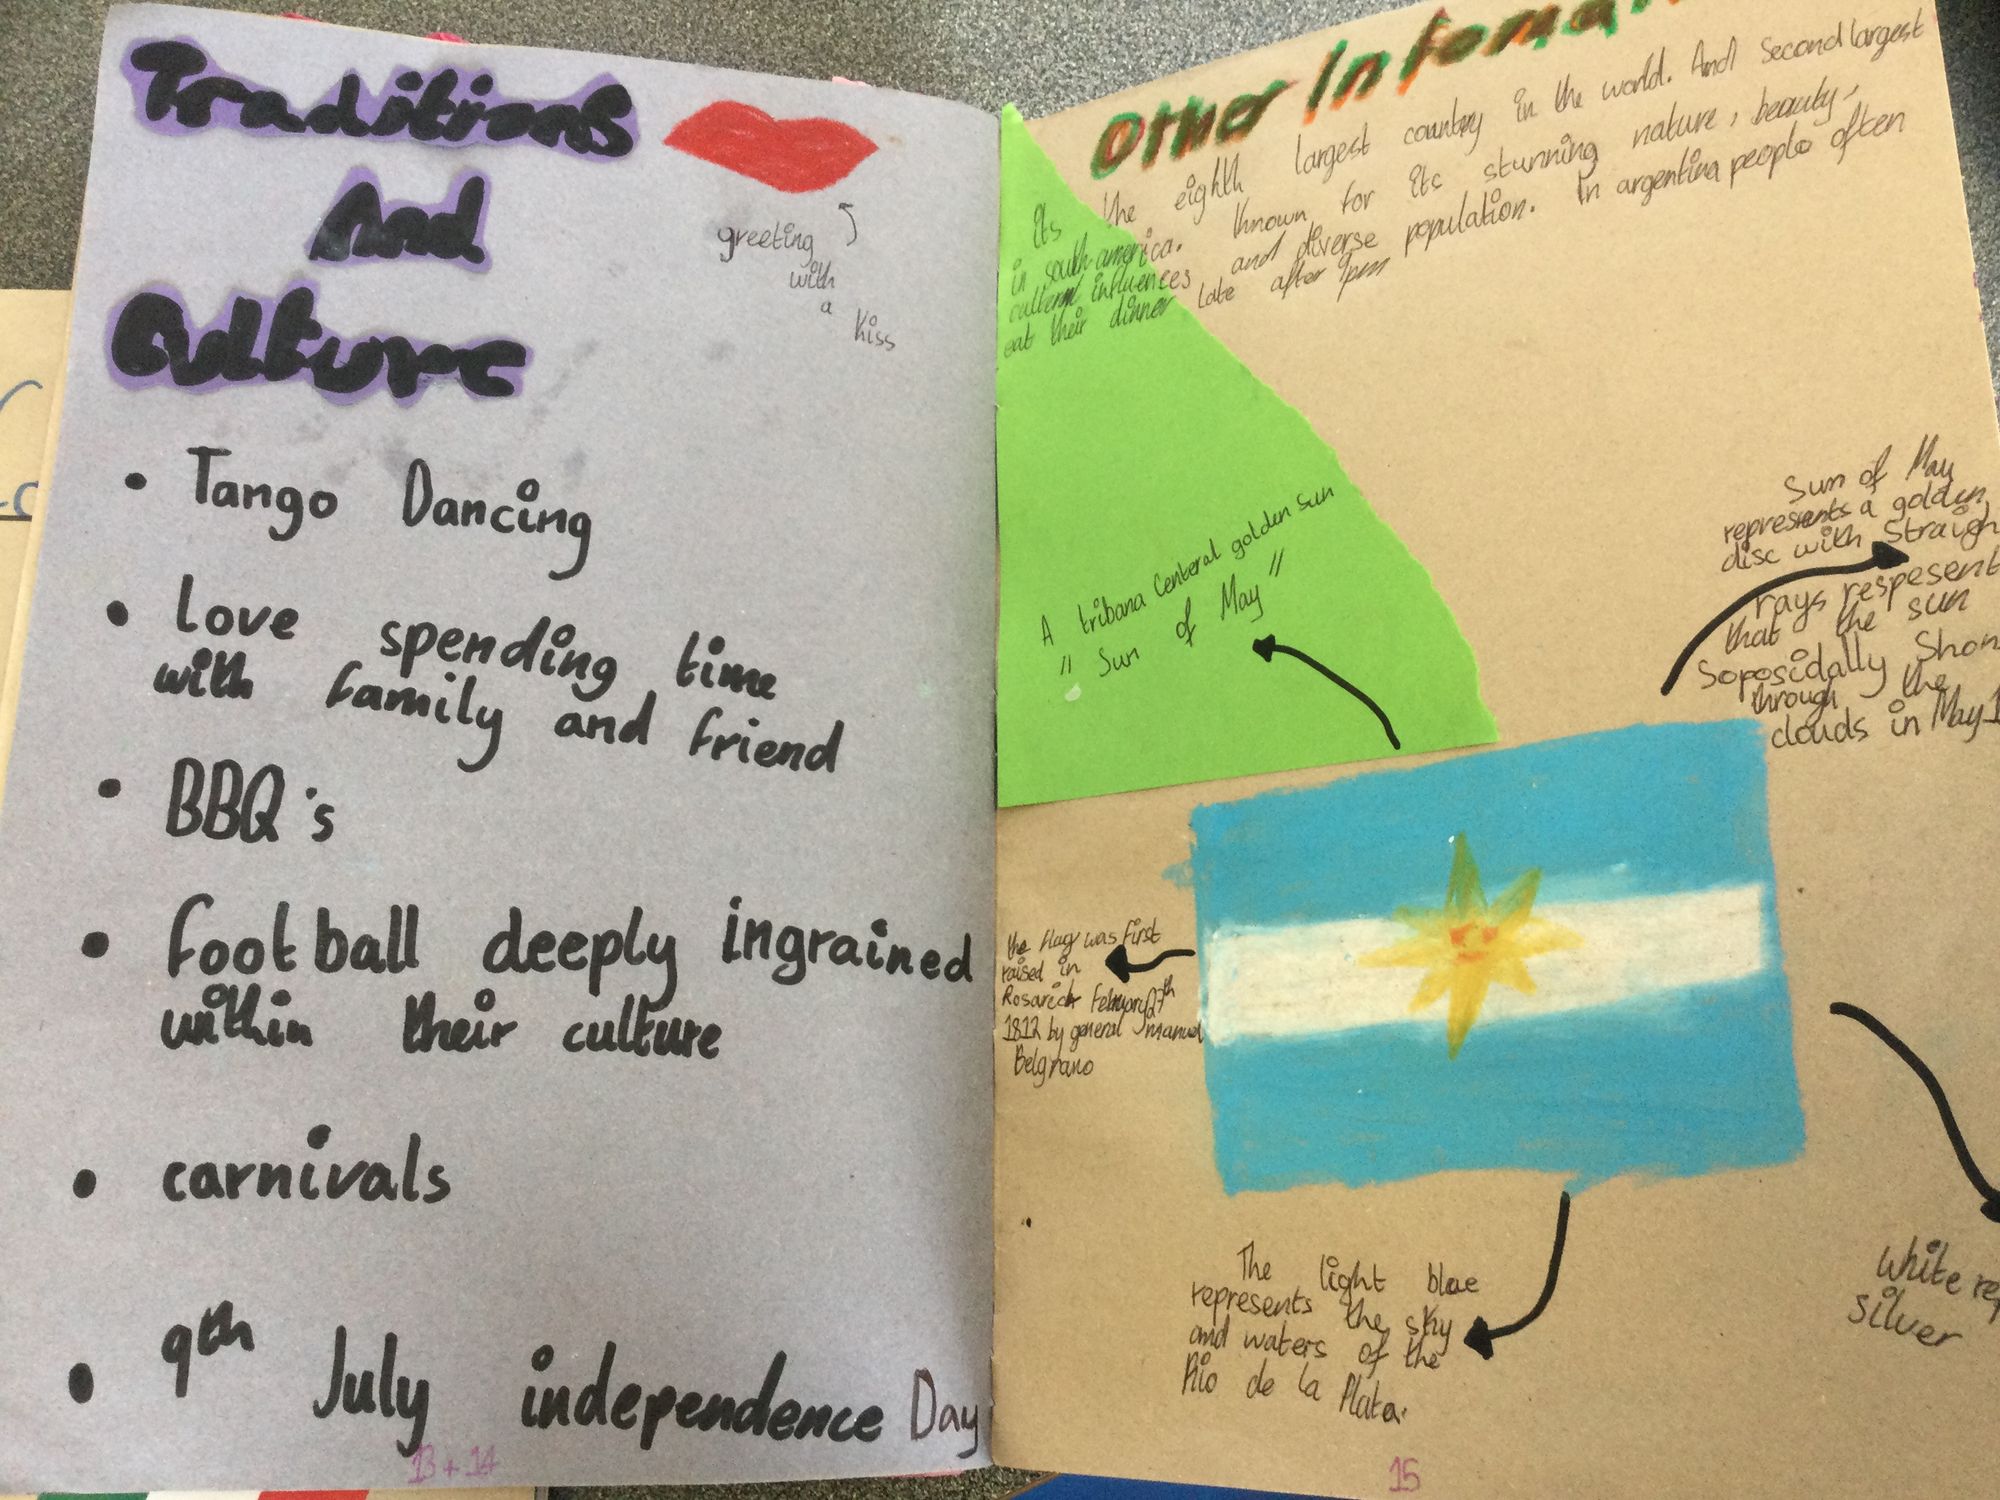 Traditions
And
Culture
greeting
with
a
kiss
• Tango Dancing
• love spending time
with family and friend
• BBQ's
• football deeply ingrained
within their culture
• carnivals
• 9th July independence Day
13 + 14
Other Infoma
its the eighth largest country in the world. And Second largest
in south america. Known for itc stunning nature, beauty,
cultural influences and diverse population. In argentina people often
eat their dinner late after 9pm
A tribana Centeral golden sun
" Sun of May "
Sum of May
represents a golden
disc with Straigh
rays respesent
that the sun
Soposidally Shon
through the
clouds in May 1
the flag was first
raised in
Rosarich February 27th
1812 by general manuel
Belgrano
The light blue
represents the sky
and waters of the
Rio de la Plata.
White rep
silver
15